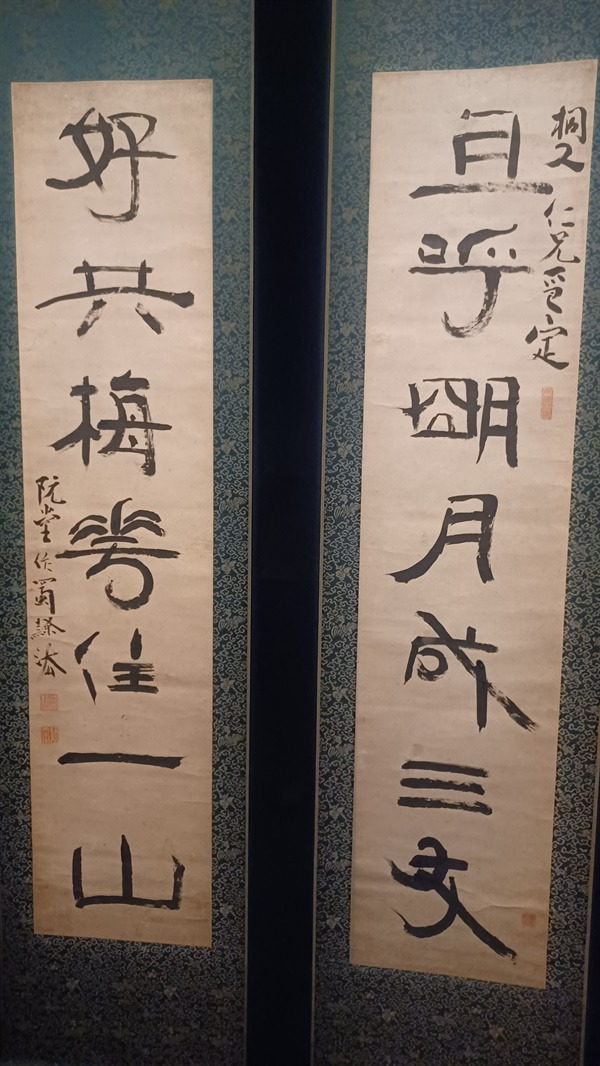 且呼明月成三友
桐人仁兄定
好共梅花住一山
阮堂作蜀隸法